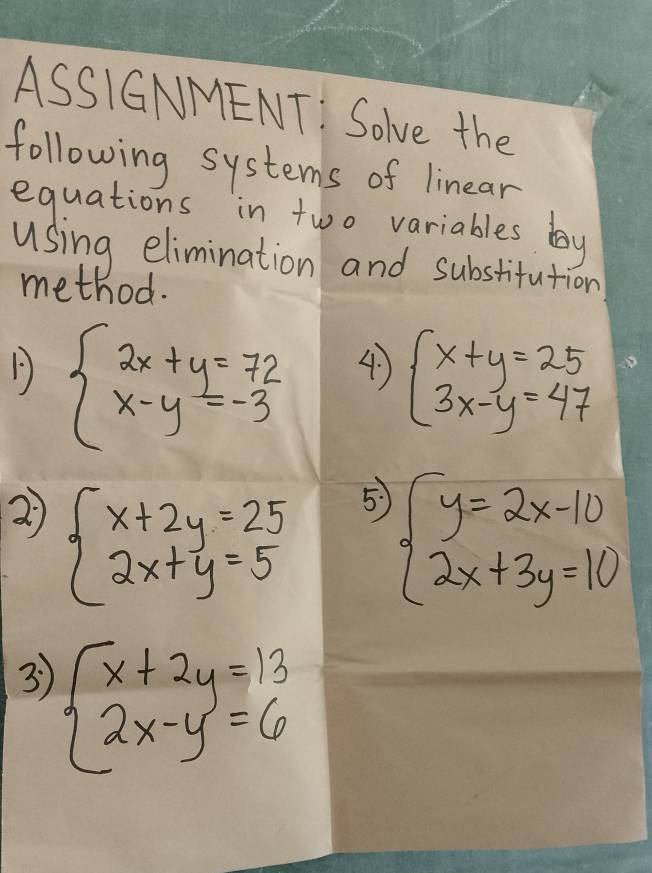 ASSIGNMENT: Solve the
following systems of linear
equations in two variables by
using elimination and substitution
method.
1.) { 2x + y = 72
x - y = -3
2.) { x + 2y = 25
2x + y = 5
3.) { x + 2y = 13
2x - y = 6
4.) { x + y = 25
3x - y = 47
5.) { y = 2x - 10
2x + 3y = 10